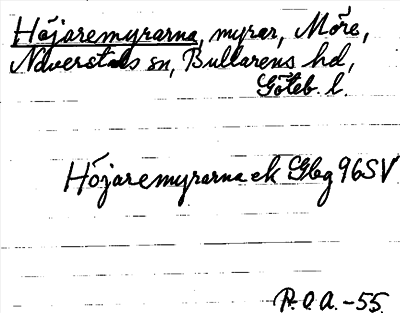 Höjaremyrarna, myrar, Möre,
Naverstads sn, Bullarens hd,
Göteb. l.
Höjaremyrarna ek Gbg 96SV
P. O. A. -55.